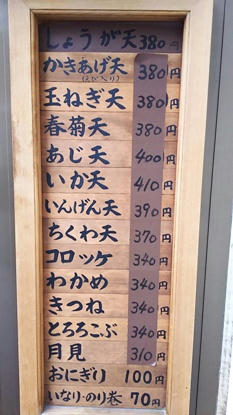 しょうが天 380円
かきあげ天 380円
(えび入り)
玉ねぎ天 380円
春菊天 380円
あじ天 400円
いか天 410円
いんげん天 390円
ちくわ天 370円
コロッケ 340円
わかめ 340円
きつね 340円
とろろこぶ 340円
月見 310円
おにぎり 100円
いなり・のり巻 70円